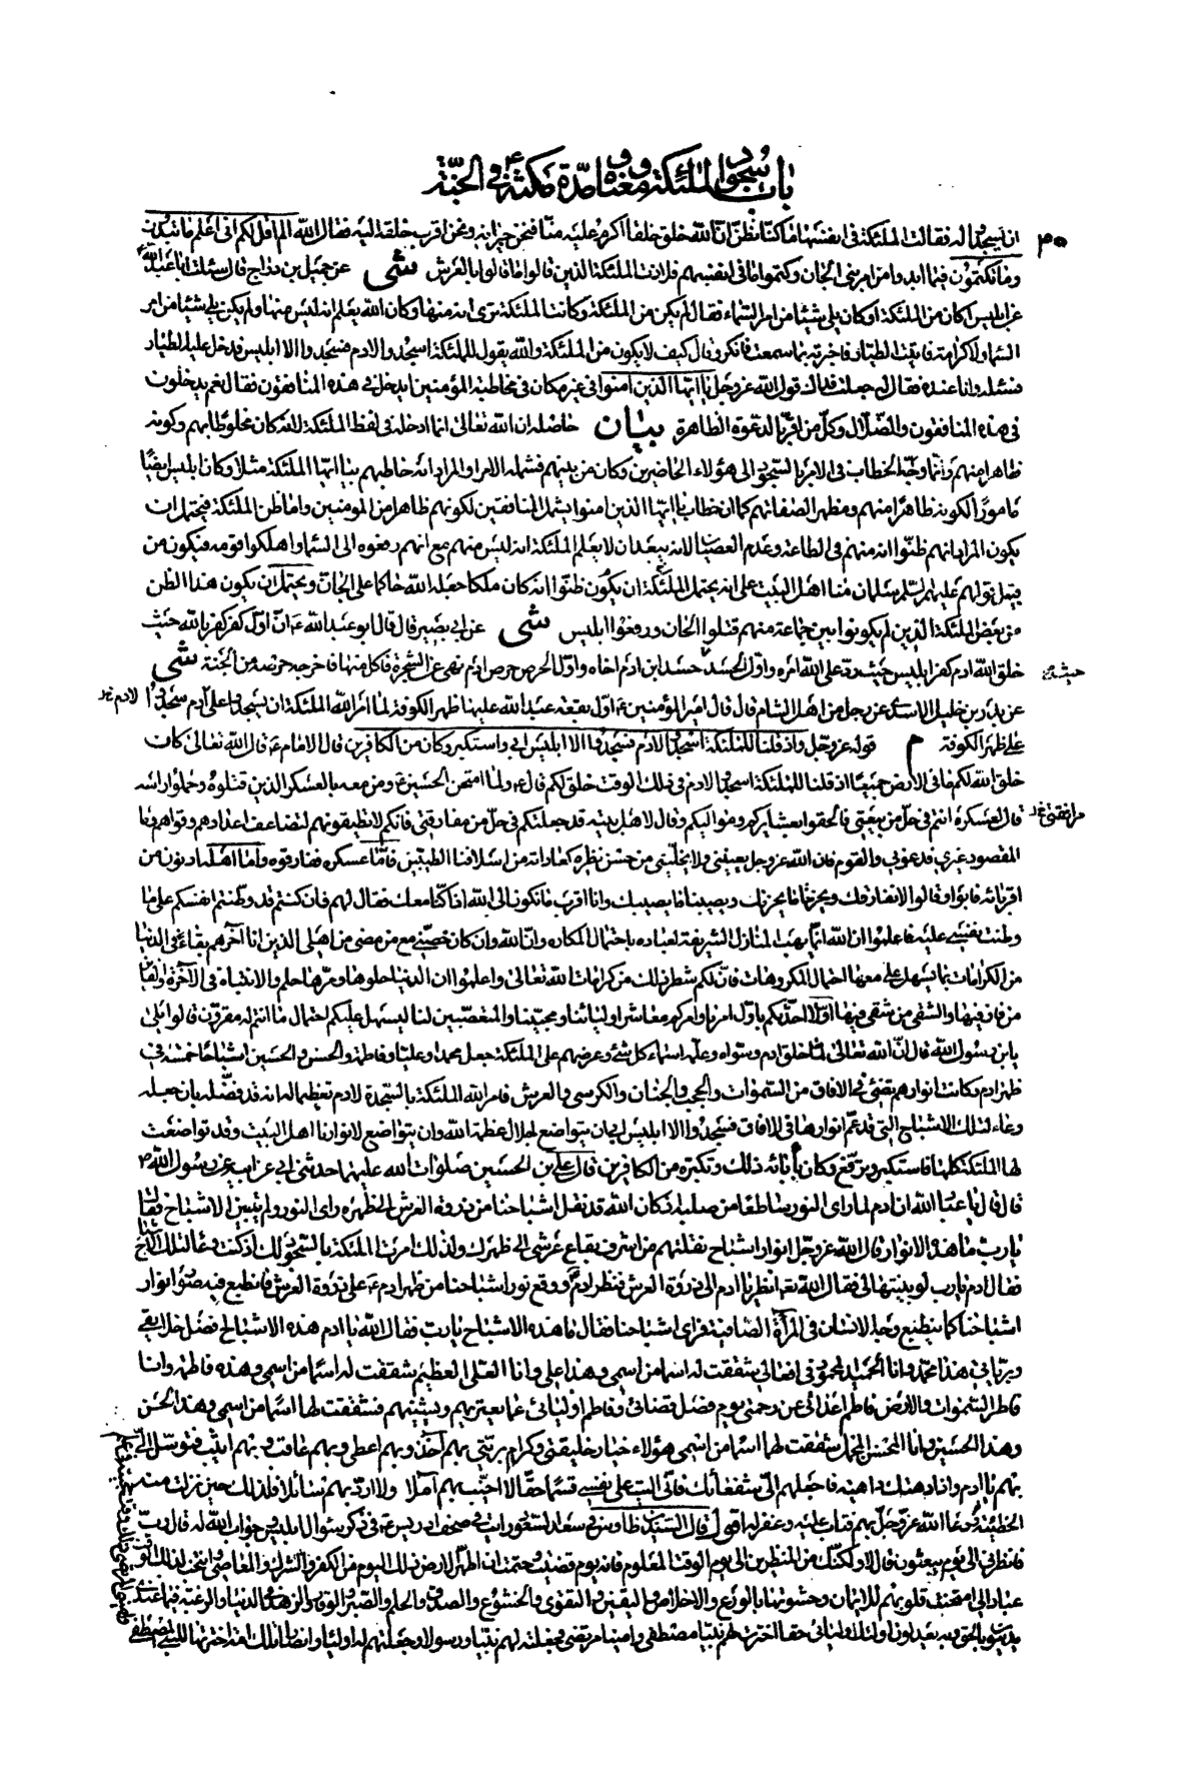 باب سجود الملائكة ومعناه ومدة مكثه ع في الجنة
٣٠
ان يسجدوا له فقالت الملئكة في انفسها ما كنا نظن ان الله خلق خلقا اكرم عليه منا فنحن جيرانه ونحن اقرب خلقه اليه فقال الله الم اقل لكم اني اعلم ما تبدون
وما تكتمون فيما ابدوا من امر بني الجان وكتموا ما في انفسهم فلاذت الملئكة الذين قالوا ما قالوا بالعرش شى عن جميل بن دراج قال سئلت ابا عبد الله ع
عن ابليس اكان من الملئكة او كان يلي شيئا من امر السماء فقال لم يكن من الملئكة وكانت الملئكة ترى انه منها وكان الله يعلم انه ليس منها ولم يكن يلي شيئا من امر
السماء ولا كرامة فاتيت الطيار فاخبرته بما سمعت فانكر وقال كيف لا يكون من الملئكة والله يقول للملئكة اسجدوا لادم فسجدوا الا ابليس فدخل عليه الطيار
فسئله وانا عنده فقال له جعلت فداك قول الله عز وجل يا ايها الذين امنوا في غير مكان في مخاطبة المؤمنين ايدخل في هذه المنافقون فقال نعم يدخلون
في هذه المنافقون والضلال وكل من اقر بالدعوة الظاهرة بيان حاصله ان الله تعالى انما ادخله في لفظ الملئكة لانه كان مخلوطا بهم وكونه
ظاهرا منهم وانما وجه الخطاب في الامر بالسجود الى هؤلاء الحاضرين وكان من بينهم فشمله الامر او المراد انه خاطبهم بيا ايها الملئكة مثلا وكان ابليس ايضا
مامورا لكونه ظاهرا منهم ومظهرا لصفاتهم كما ان خطاب يا ايها الذين امنوا يشمل المنافقين لكونهم ظاهرا من المومنين واما ظن الملئكة فيحتمل ان
يكون المراد انهم ظنوا انه منهم في الطاعة وعدم العصيان لانه يبعد ان لا يعلم الملئكة انه ليس منهم مع انهم رفعوه الى السماء واهلكوا قومه فيكون من
قبيل قولهم عليهم السلم سلمان منا اهل البيت على انه يحتمل الملئكة ان يكون ظنوا انه كان ملكا جعله الله حاكما على الجان ويحتمل ان يكون هذا الظن
من بعض الملئكة الذين لم يكونوا بين جماعة منهم قتلوا الجان ورفعوا ابليس شى عن ابي بصير قال قال ابو عبد الله ع ان اول كفر كفر بالله حيث
خلق الله ادم كفر ابليس حيث رد على الله امره واول الحسد حسد ابن ادم اخاه واول الحرص حرص ادم نهي عن الشجرة فاكل منها فاخرجه حرصه من الجنة شى
عن بدر بن خليل الاسدي عن رجل من اهل الشام قال قال امير المؤمنين ع اول بقعة عبد الله عليها ظهر الكوفة لما امر الله الملئكة ان يسجدوا على ادم سجدوا
على ظهر الكوفة م قوله عز وجل واذ قلنا للملئكة اسجدوا لادم فسجدوا الا ابليس ابى واستكبر وكان من الكافرين قال الامام ع قال الله تعالى كان
خلق الله لكم ما في الارض جميعا اذ قلنا للملئكة اسجدوا لادم في ذلك الوقت خلق لكم قال ع ولما امتحن الحسين ع ومن معه بالعسكر الذين قتلوه وحملوا راسه
قال لعسكره انتم في حل من بيعتي فالحقوا بعشايركم ومواليكم وقال لاهل بيته قد جعلتكم في حل من مفارقتي فانكم لا تطيقونهم لتضاعف اعدادهم وقواهم وما
المقصود غيري فدعوني والقوم فان الله عز وجل يعينني ولا يخليني من حسن نظره كعاداته من اسلافنا الطيبين فاما عسكره ففارقوه واما اهله الادنون من
اقربائه فابوا وقالوا لا نفارقك ويحزننا ما يحزنك ويصيبنا ما يصيبك وانا اقرب ما نكون الى الله اذا كنا معك فقال لهم فان كنتم قد وطنتم انفسكم على ما
وطنت نفسي عليه فاعلموا ان الله انما يهب المنازل الشريفة لعباده باحتمال المكاره وان الله وان كان خصني مع من مضى من اهلي الذين انا اخرهم بقاء في الدنيا
من الكرامات بما يسهل علي معها احتمال المكروهات فان لكم شطر ذلك من كرامات الله تعالى واعلموا ان الدنيا حلوها ومرها حلم والانتباه في الاخرة والفائز
من فاز فيها والشقي من شقي فيها اولا احدثكم باول امرنا وامركم معاشر اوليائنا ومحبينا والمتعصبين لنا ليسهل عليكم احتمال ما انتم له مقرون قالوا بلى
يابن رسول الله قال ان الله تعالى لما خلق ادم وسواه وعلمه اسماء كل شئ وعرضهم على الملئكة جعل محمدا وعليا وفاطمة والحسن والحسين اشباحا خمسة في
ظهر ادم وكانت انوارهم تضئ في الافاق من السموات والحجب والجنان والكرسي والعرش فامر الله الملئكة بالسجدة لادم تعظيما له انه قد فضله بان جعله
وعاء لتلك الاشباح التي قد عم انوارها في الافاق فسجدوا الا ابليس ابى ان يتواضع لجلال عظمة الله وان يتواضع لانوارنا اهل البيت وقد تواضعت
لها الملئكة كلها فاستكبر وترفع وكان بابائه ذلك وتكبره من الكافرين قال علي بن الحسين صلوات الله عليهما حدثني ابي عن ابيه عن رسول الله ص
قال قال يا عباد الله ان ادم لما راى النور ساطعا من صلبه اذ كان الله قد نقل اشباحنا من ذروة العرش الى ظهره راى النور ولم يتبين الاشباح فقال
يا رب ما هذه الانوار قال الله عز وجل انوار اشباح نقلتهم من اشرف بقاع عرشي الى ظهرك ولذلك امرت الملئكة بالسجود لك اذ كنت وعاء لتلك الاشباح
فقال ادم يا رب لو بينتها لي فقال الله تعالى انظر يا ادم الى ذروة العرش فنظر ادم ووقع نور اشباحنا من ظهر ادم ع على ذروة العرش فانطبع فيه صور انوار
اشباحنا كما ينطبع وجه الانسان في المرآة الصافية فراى اشباحنا فقال ما هذه الاشباح يا رب فقال الله يا ادم هذه الاشباح افضل خلايقي
وبرياتي هذا محمد وانا الحميد المحمود في افعالي شققت له اسما من اسمي وهذا علي وانا العلي العظيم شققت له اسما من اسمي وهذه فاطمة وانا
فاطر السموات والارض فاطم اعدائي عن رحمتي يوم فصل قضائي وفاطم اوليائي عما يعتريهم ويشينهم فشققت لها اسما من اسمي وهذا الحسن
وهذا الحسين وانا المحسن المجمل شققت لهما اسما من اسمي هؤلاء خيار خليقتي وكرام بريتي بهم آخذ وبهم اعطي وبهم عاقب وبهم اثيب فتوسل الي
بهم يا ادم واذا دهتك داهية فاجعلهم الي شفعائك فاني اليت على نفسي قسما حقا لا اخيب بهم آملا ولا ارد بهم سائلا فلذلك حين نزلت منه
الخطيئة دعا الله عز وجل بهم فتاب عليه وغفر له اقول قال السيد بن طاوس في سعد السعود رايت في صحف ادريس ع في ذكر سؤال ابليس وجواب الله له قال رب
فانظرني الى يوم يبعثون قال لا ولكنك من المنظرين الى يوم الوقت المعلوم فانه يوم قضيت وحتمت ان اطهر الارض ذلك اليوم من الكفر والشرك والمعاصي وانتخب لذلك الوقت
عبادا لي امتحنت قلوبهم للايمان وحشوتها بالورع والاخلاص واليقين والتقوى والخشوع والصدق والحلم والصبر والوقار والزهد في الدنيا والرغبة فيما عندي
يدينون بالحق وبه يعدلون اولئك اوليائي حقا اخترت لهم نبيا مصطفى وامينا مرتضى فجعلته لهم نبيا ورسولا وجعلتهم له اولياء وانصارا تلك امة اخترتها للنبي المصطفى